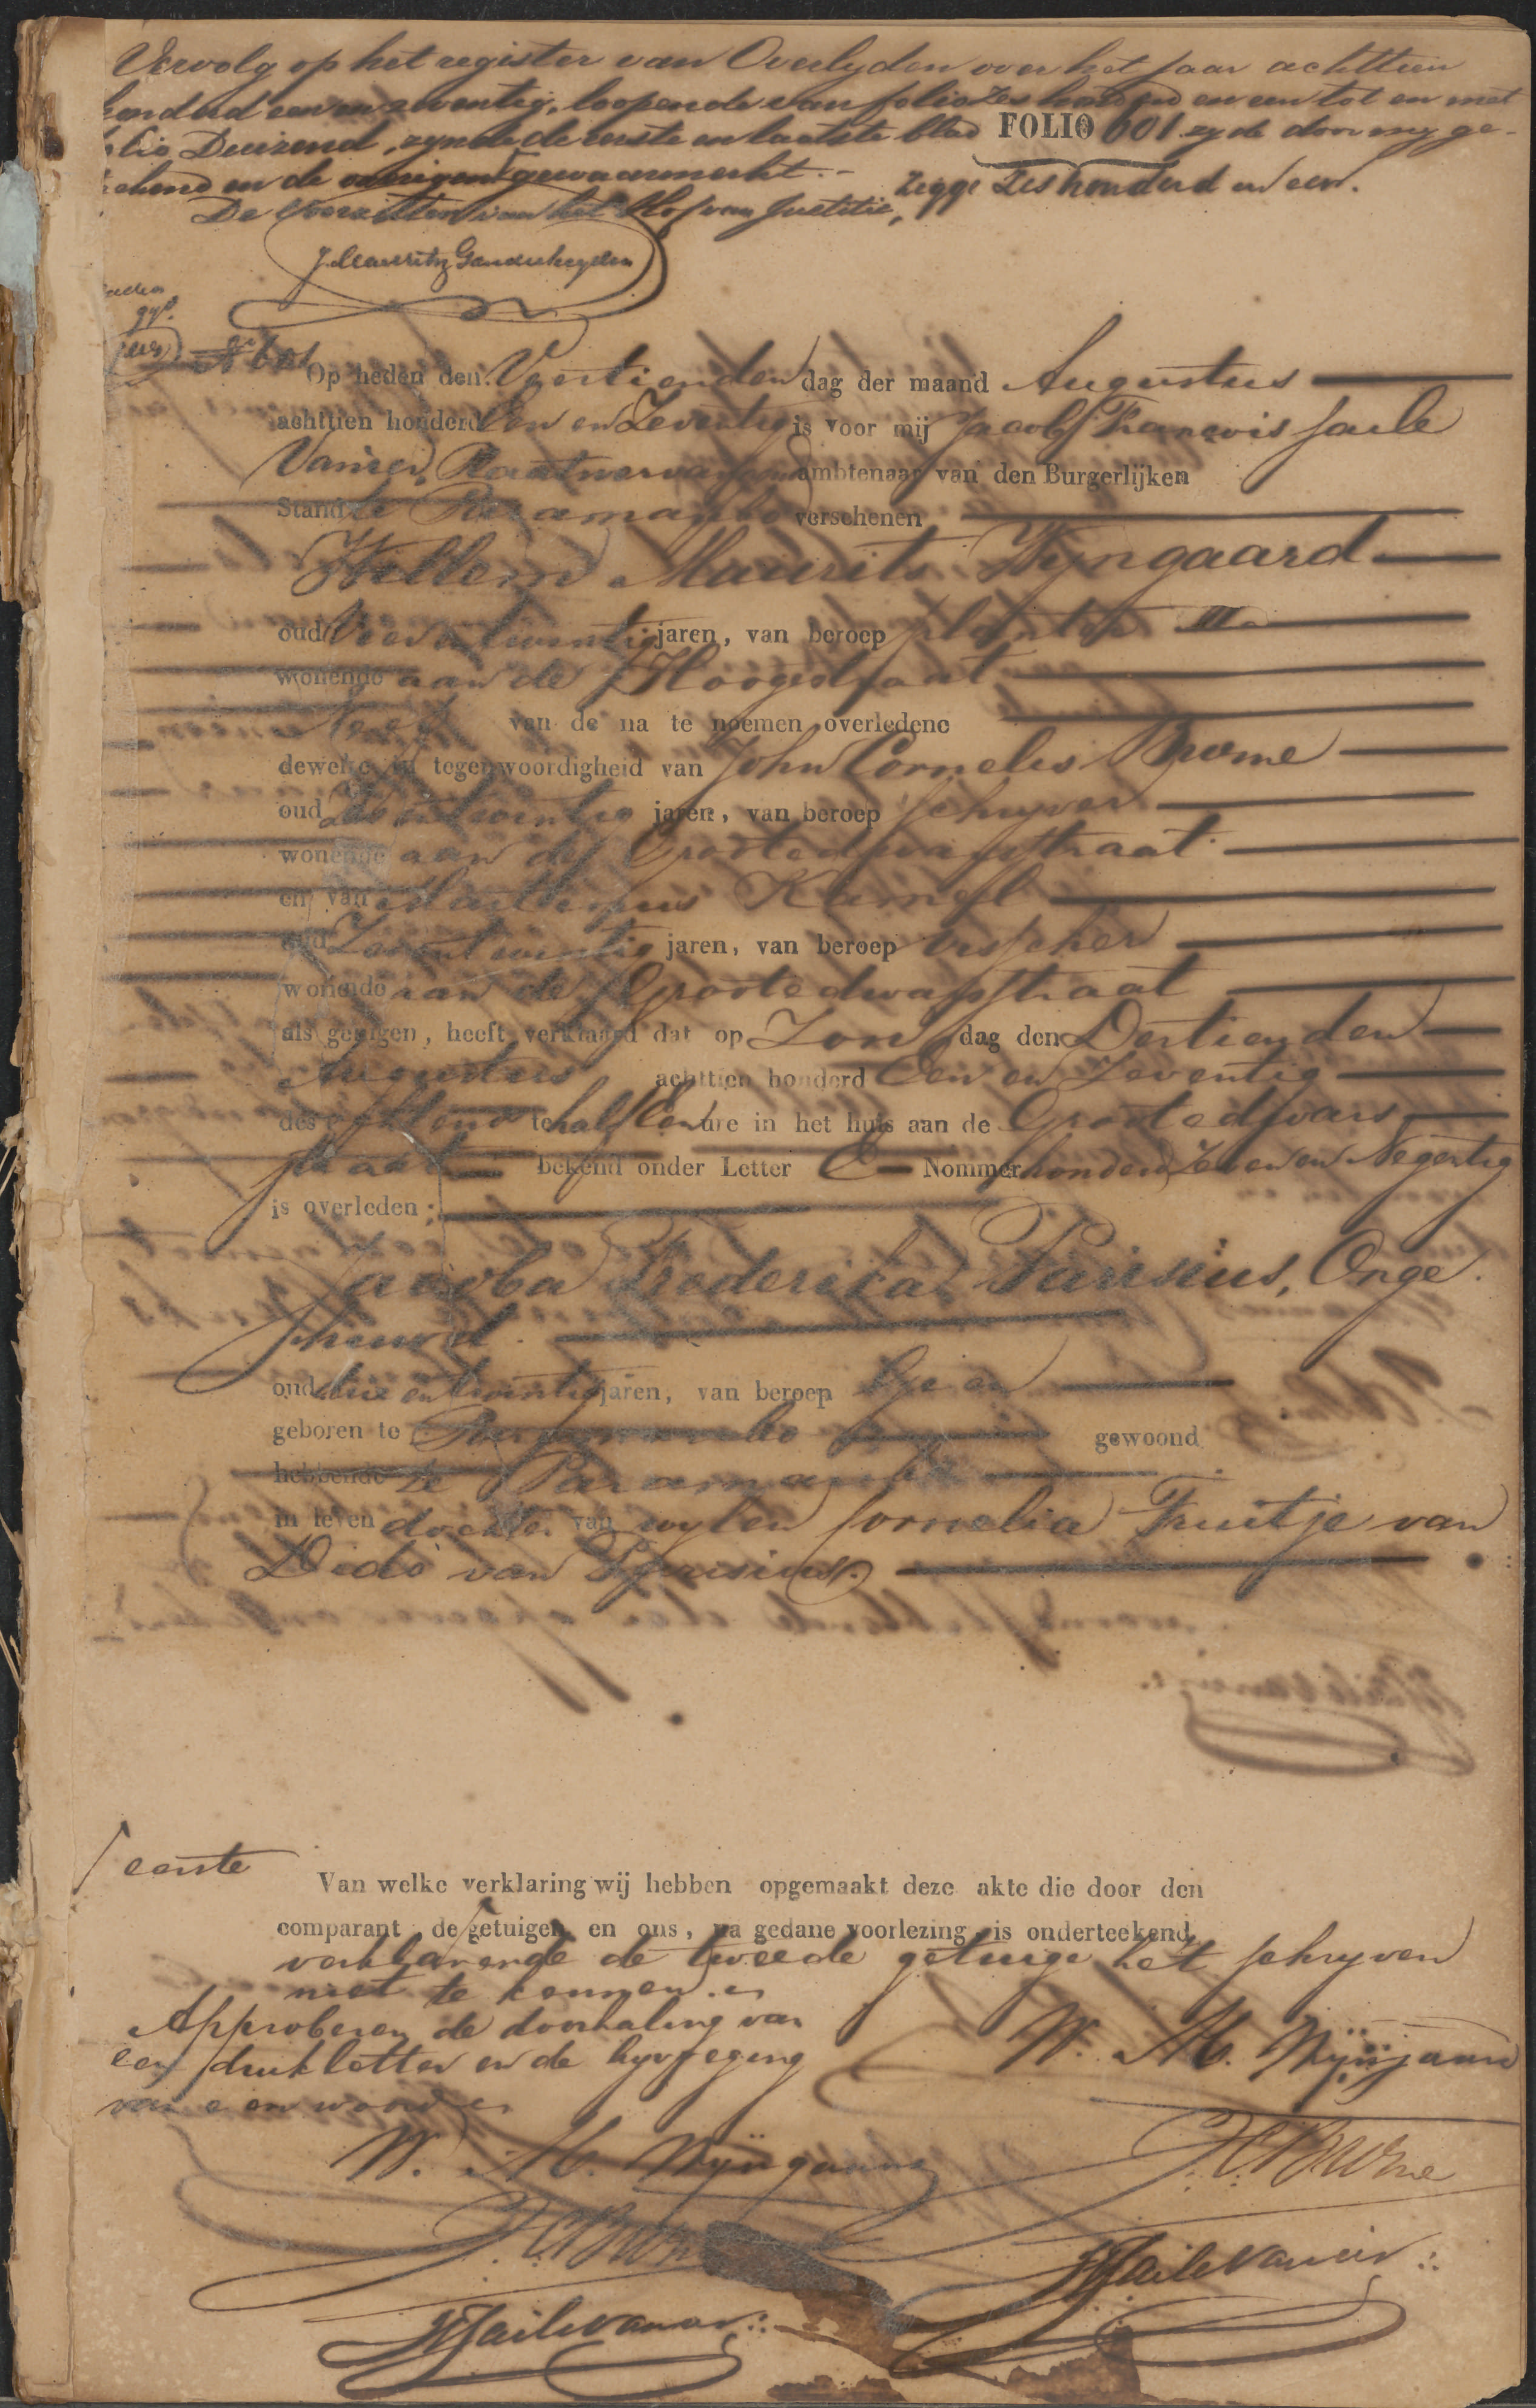 Vervolg op het register van Overlyden over het Jaar achttien
honderd een en zeventig, loopende van folio zes honderd en een tot en met
folio Duizend, zynde de eerste en laatste blad FOLIO 601 zy de door my ge-
tekend en de overigen gewaarmerkt.- Zegge Zes honderd en een.
De Voorzitter van het Hof van Justitie,
N° 601
Op heden den Veertienden dag der maand Augustus
achttien honderd Een en Zeventig is voor mij Jacob Francois Saile
Vanier, Plaatsvervangend ambtenaar van den Burgerlijken
Stand te Paramaribo verschenen
Willem Maurits Wyngaard
oud jaren, van beroep planter
wonende aan de Hoogestraat
Neef van de na te noemen overledene
dewelke in tegenwoordigheid van John Cornelis Burne
oud jaren, van beroep schryver
wonende aan de Grootedwarsstraat
en van
oud Zevenentwintig jaren, van beroep visscher
wonende aan de Grootedwarsstraat
als getuigen, heeft verklaard dat op Zon dag den Dertienden
Augustus achttien honderd Een en Zeventig
des te half Een ure in het huis aan de Grootedwars
straat bekend onder Letter E Nommer honderd Zeven en Negentig
is overleden;
Jacoba Frederica Parisius, Onge
huwd.
oud drie en twintig jaren, van beroep Geen
geboren te Paramaribo gewoond
hebbende te Paramaribo
in leven dochter van wylen Cornelia Truitje van
Dido van Parisius.
eerste
Van welke verklaring wij hebben opgemaakt deze akte die door den
comparant, de getuigen en ons, na gedane voorlezing, is onderteekend,
verklarende de tweede getuige het schryven
niet te kennen.
Approberen de doorhaling van
een drukletter en de byvoeging
van een woord
W. M. Wyngaard
W. M. Wyngaard
J.C. Burne
J.C. Burne
JF Saile Vanier
JF Saile Vanier